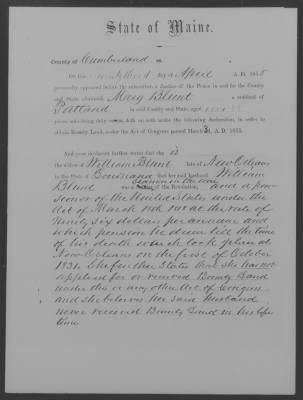 State of Maine.
County of Cumberland ss.
On this day of April A.D. 1855
personally appeared before the subscriber, a Justice of the Peace in and for the County
and State aforesaid, Mary Blunt a resident of
Portland in said County and State, aged
years who being duly sworn doth on oath make the following declaration, in order to
obtain Bounty Land, under the Act of Congress passed March 3, A.D. 1855.
And your declarant further states that she is
the widow of William Blunt late of New Orleans
in the State of Louisiana that her said husband William
Blunt was a in the war of the Revolution, and a pen-
sioner of the United States under the
Act of March at the rate of
Ninety six dollars per annum and
which pension he drew till the time
of his death which took place at
New Orleans on the first of October
1831. She further States that she has not
applied for or received Bounty Land
under this or any other Act of Congress
and she believes her said husband
never received Bounty Land in his life
time